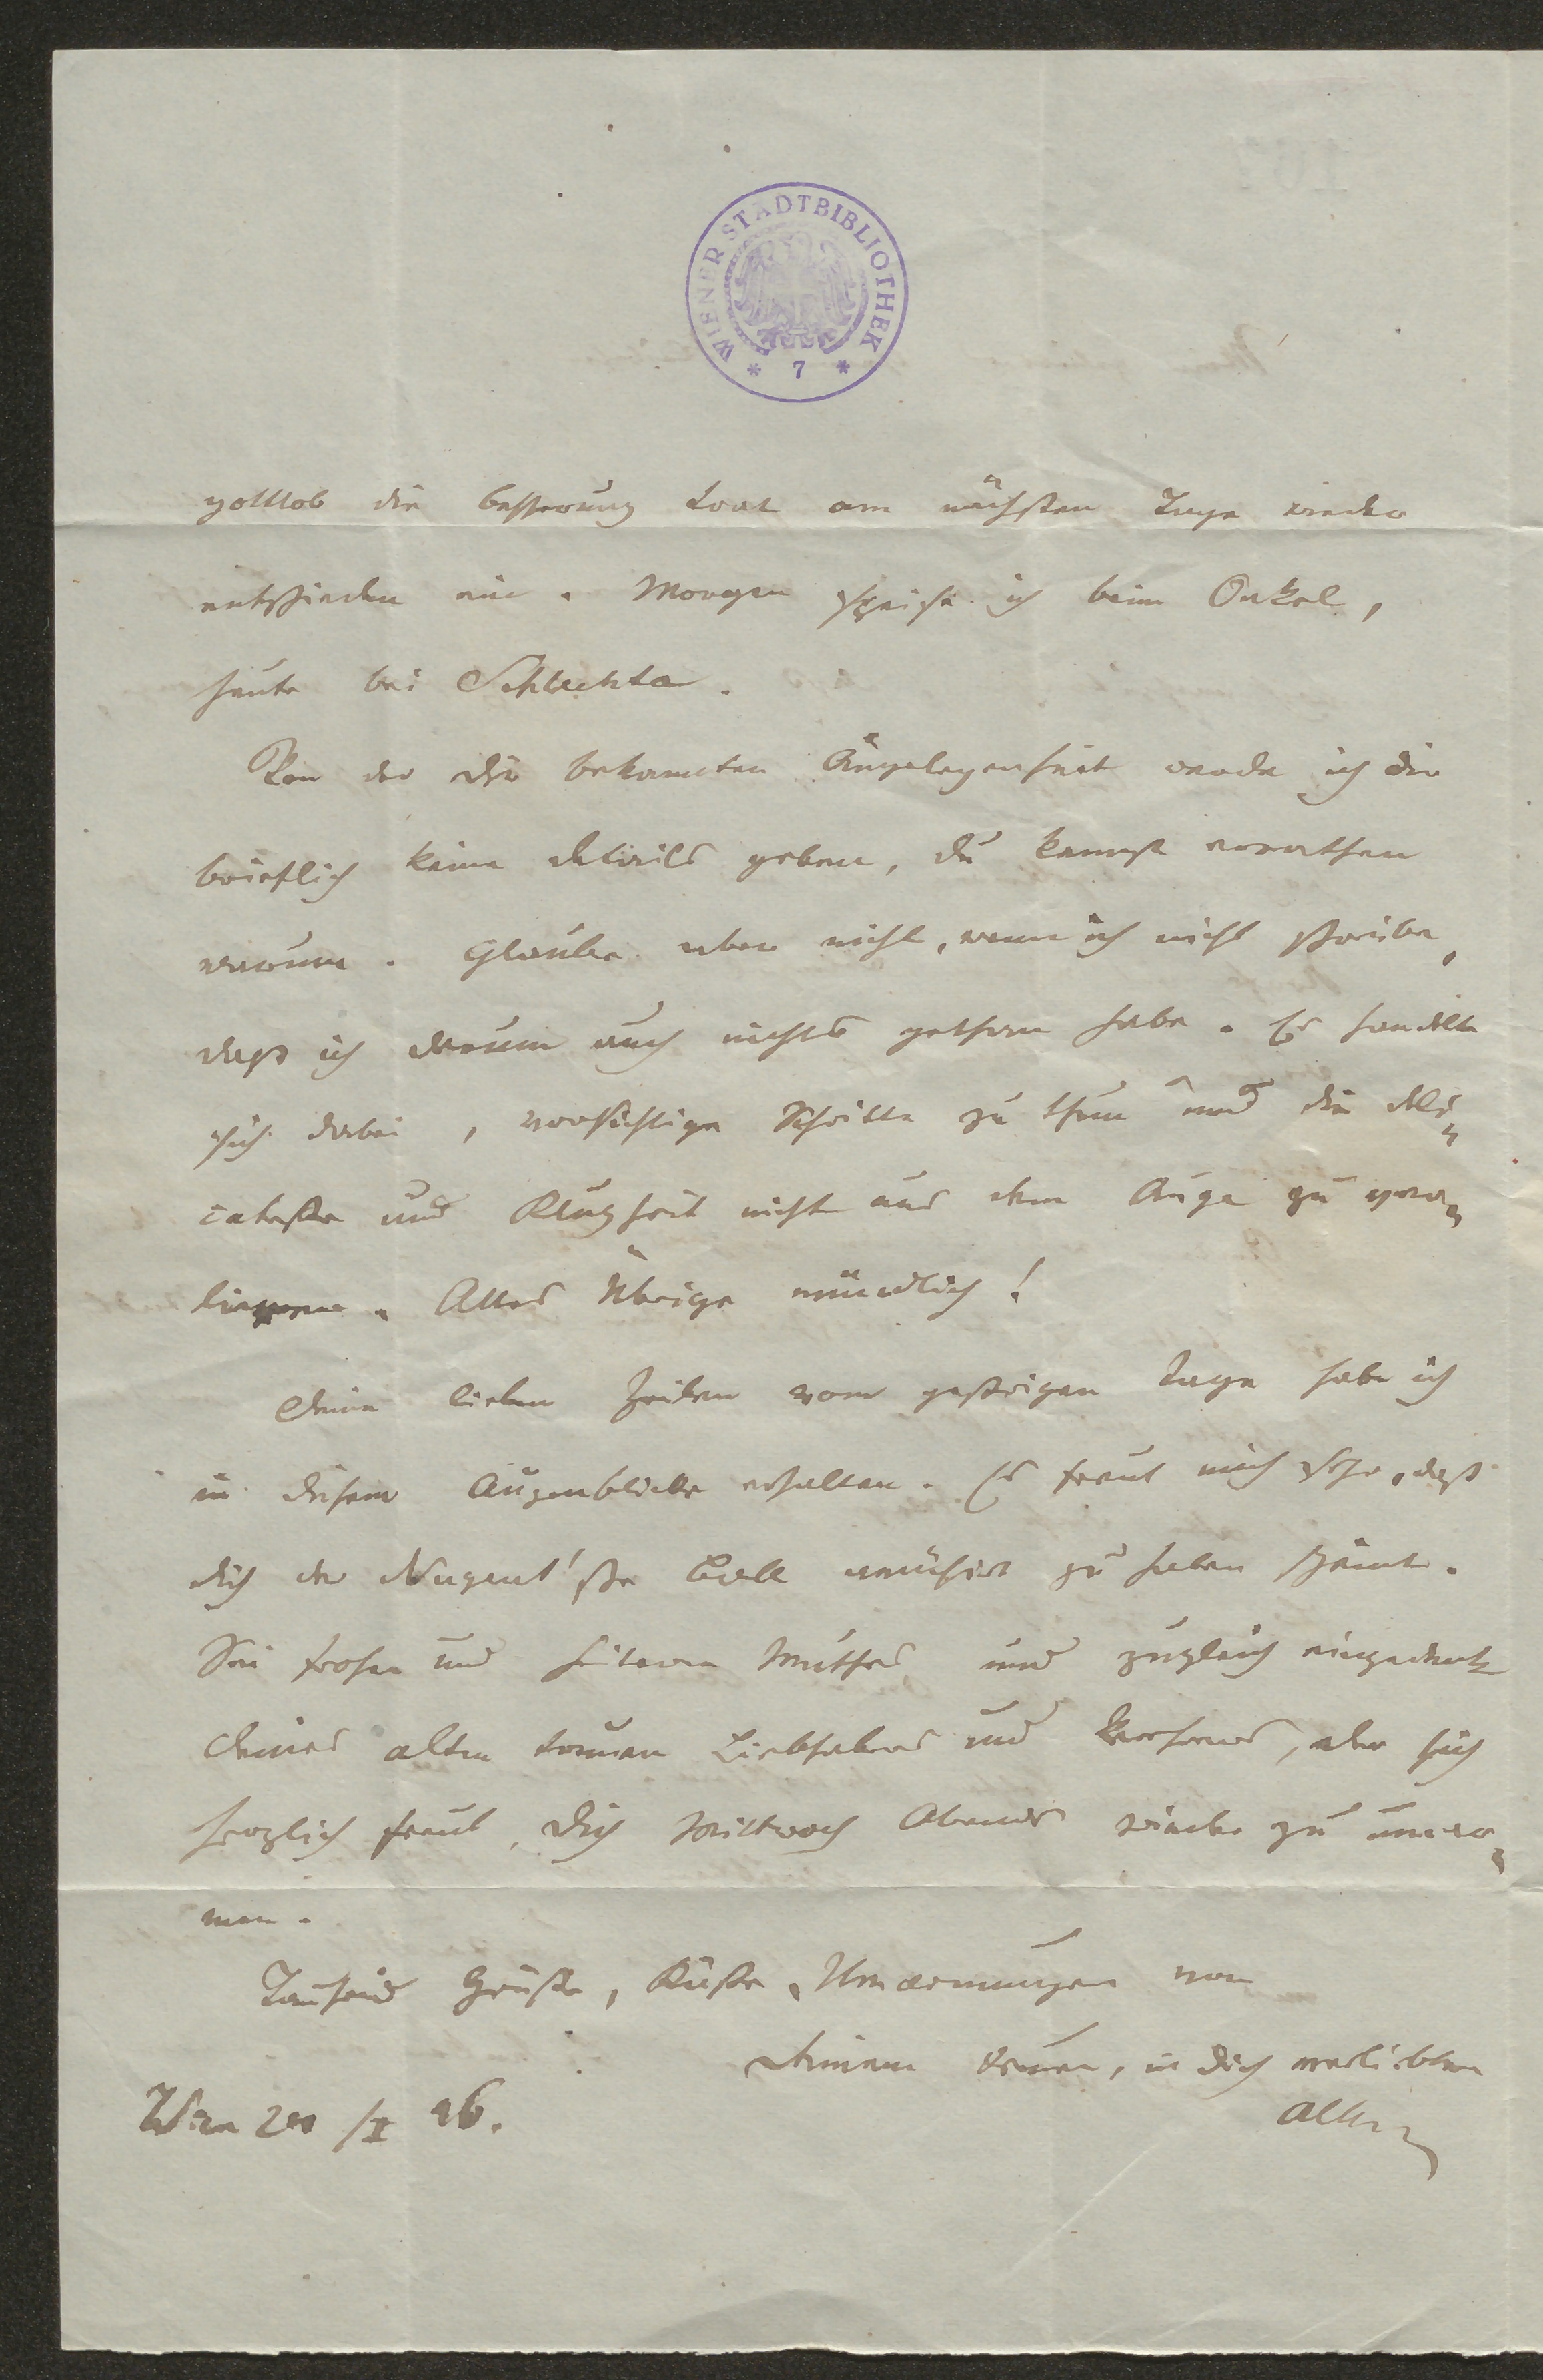 WIENER STADTBIBLIOTHEK
* 7 *
gottlob die Besserung trat am nächsten Tage wieder
entschieden ein. Morgen speise ich beim Onkel,
heute bei Schlechta.
Von der dir bekannten Angelegenheit werde ich dir
brieflich keine Details geben, du kannst errathen
warum. Glaube aber nicht, wenn ich nicht schreibe,
daß ich darum auch nichts gethan habe. Es handelt
sich dabei, vorsichtige Schritte zu thun und die Deli-
catesse und Klugheit nicht aus dem Auge zu ver-
lieren. Alles Übrige mündlich!
Deine lieben Zeilen vom gestrigen Tage habe ich
in diesem Augenblicke erhalten. Es freut mich sehr, daß
dich der Nugent'sche Ball amüsirt zu haben scheint.
Sei frohen und heiteren Muthes und zugleich eingedenk
deines alten treuen Liebhabers und Verehrers, der sich
herzlich freut, dich Mittwoch Abends wieder zu umar-
men.
Tausend Grüße, Küße, Umarmungen von
deinem treuen, in dich verliebten
Wien /II 46.